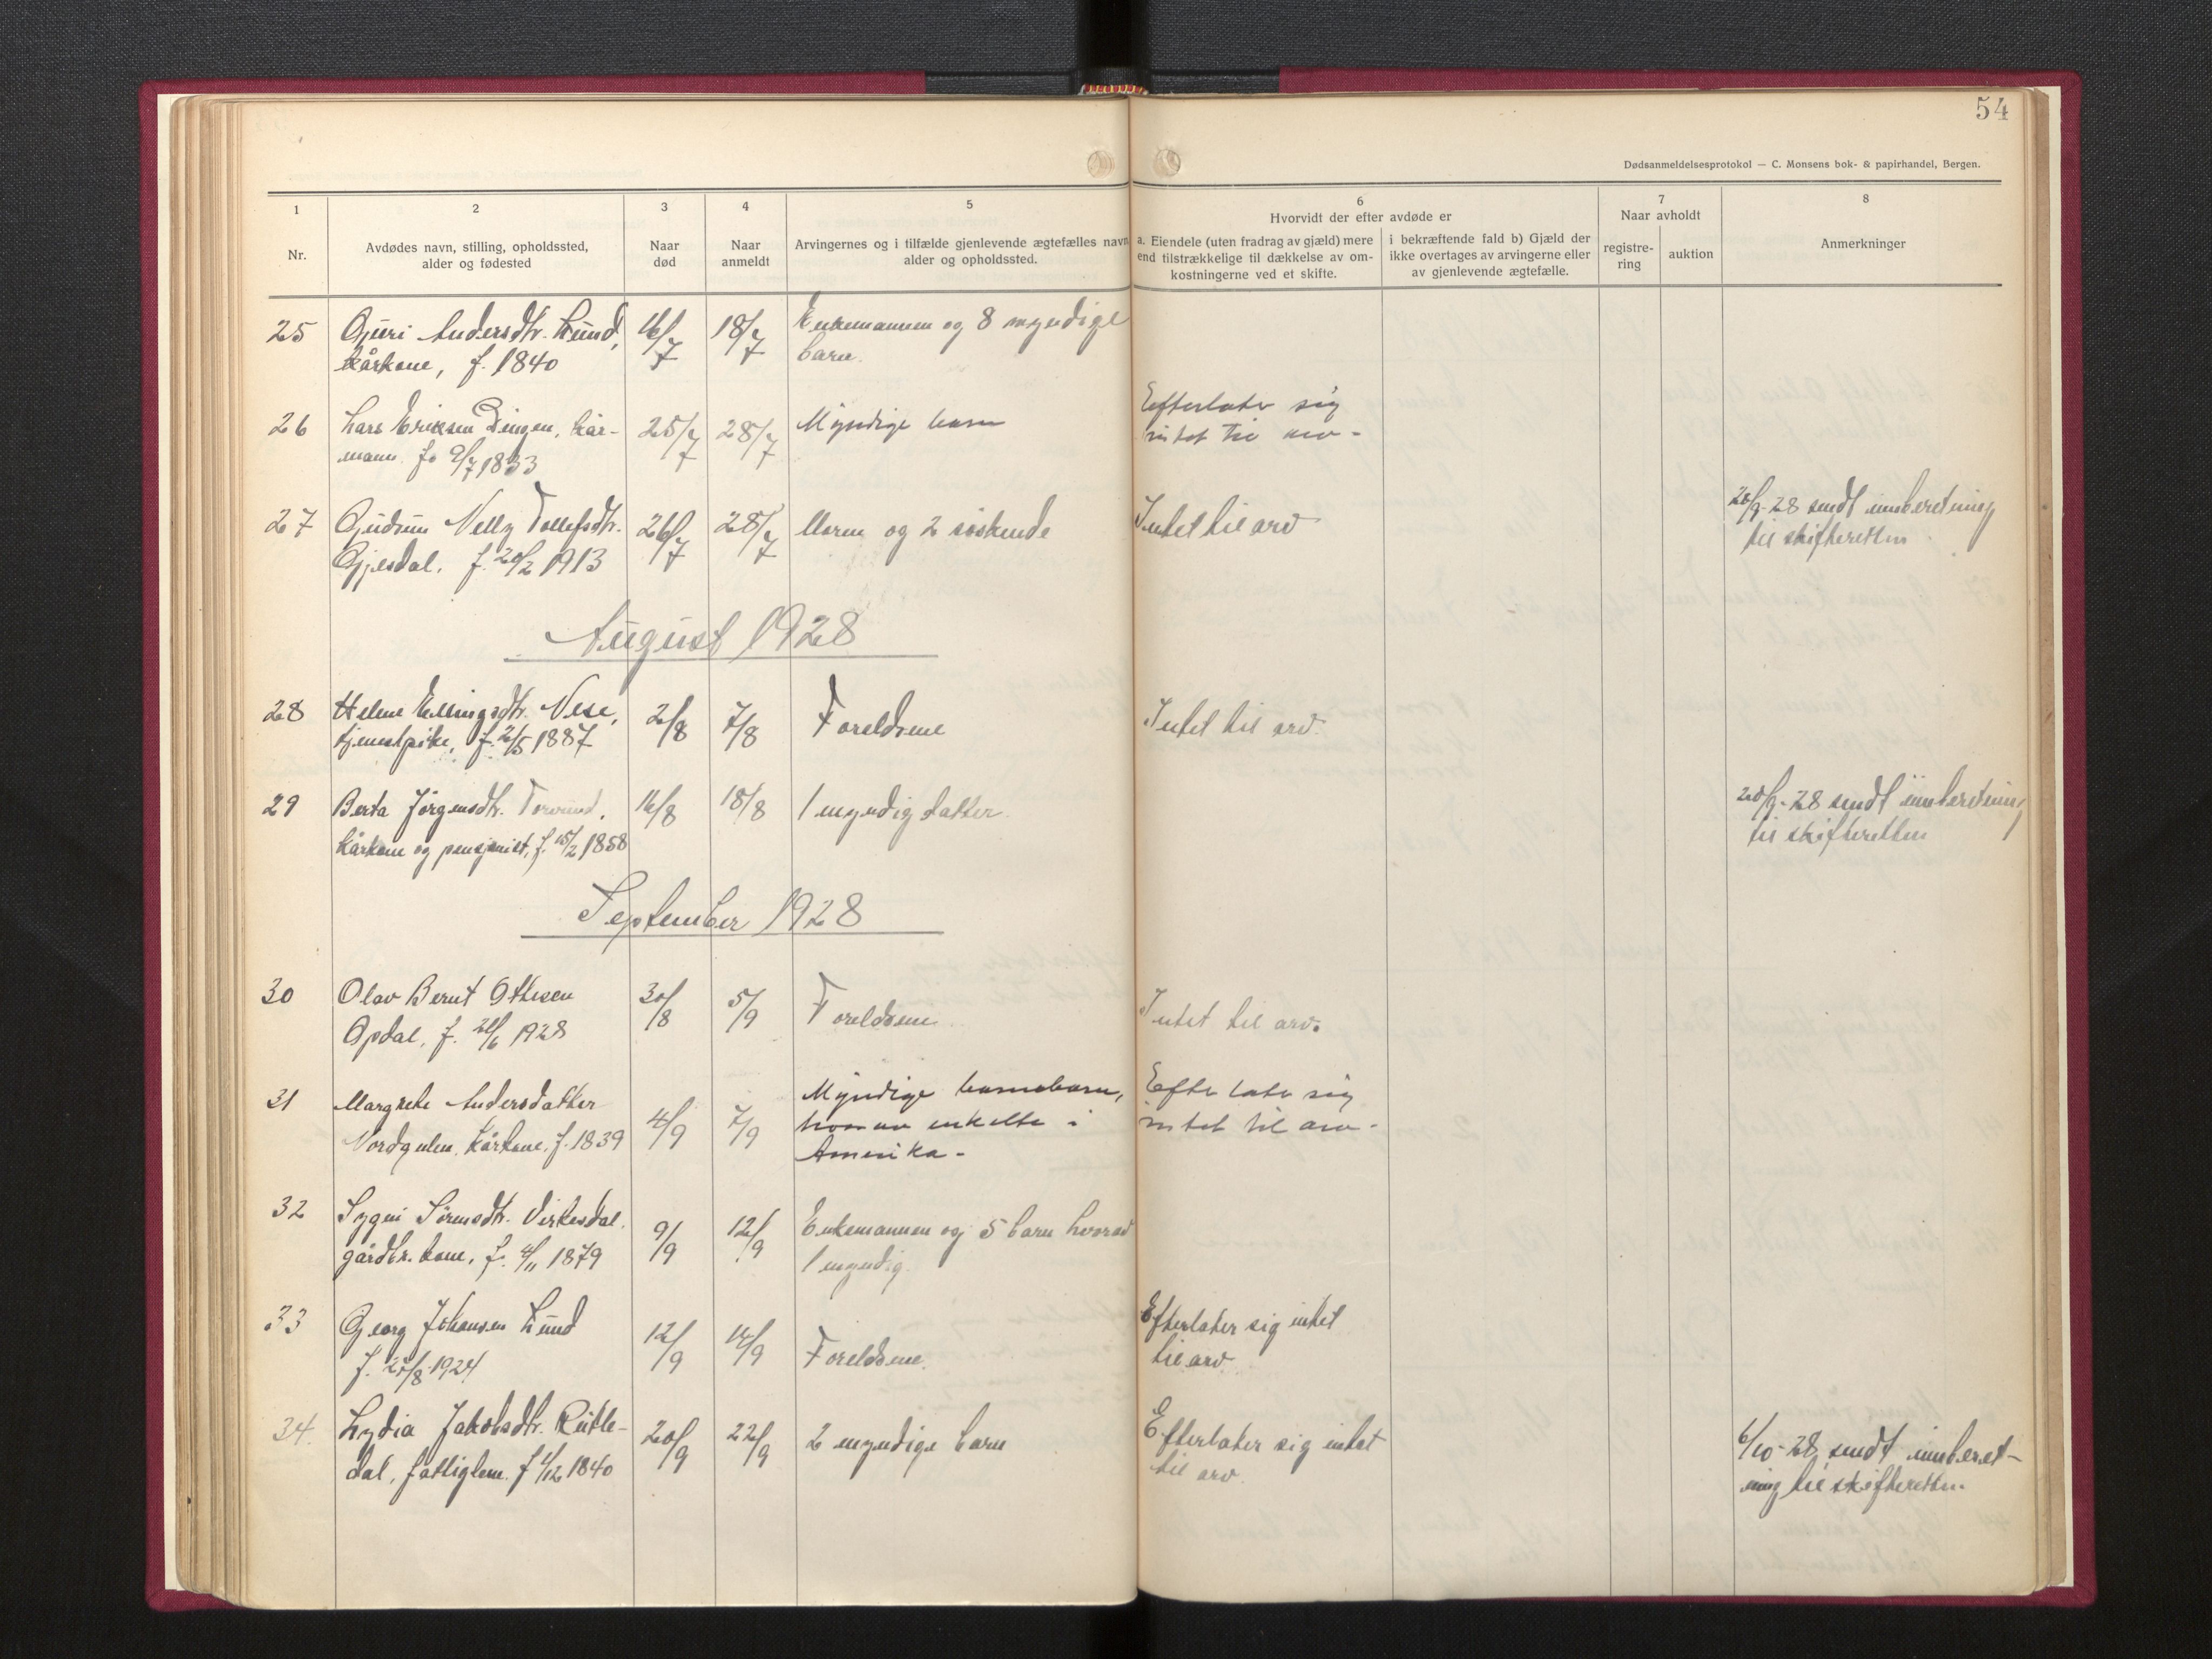 54
Dødsanmeldelsesprotokol — C. Monsens bok- & papirhandel, Bergen.
1
Nr.
2
Avdødes navn, stilling, opholdssted,
alder og fødested
3
Naar
død
4
Naar
anmeldt
5
Arvingernes og i tilfælde gjenlevende ægtefælles navn
alder og opholdssted.
6
Hvorvidt der efter avdøde er
a. Eiendele (uten fradrag av gjæld) mere
end tilstrækkelige til dækkelse av om-
kostningerne ved et skifte.
i bekræftende fald b) Gjæld der
ikke overtages av arvingerne eller
av gjenlevende ægtefælle.
7
Naar avholdt
registre-
ring
auktion
8
Anmerkninger
25 Guri Andersdtr. Lund, 16/7 18/7 Enkemannen og 8 myndige
kårkone, f. 1840 barn.
26 Lars Eriksen Dingen, kår- 25/7 28/7 Myndige barn Efterlater sig
mann f. 9/7 1833 intet til arv -
27 Gudrun Nelly Tollefsdtr. 26/7 28/7 Moren og 2 søskende Intet til arv 28/9-28 sendt innberetning
Gjesdal. f. 20/2 1913 til skifteretten.
August 1928
28 Helene Ellingsdtr. Nese, 2/8 7/8 Foreldrene Intet til arv.
tjenestpike, f. 2/5 1887
29 Berta Jørgensdtr. Torvund, 16/8 18/8 1 myndig datter. 28/9-28 sendt innberetning
kårkone og pensjonist, f. 15/2 1858 til skifteretten
September 1928
30 Olav Bernt Ottesen 30/8 5/9 Foreldrene Intet til arv.
Opdal, f. 21/6 1928
31 Margrete Andersdatter 4/9 7/9 Myndige barnebarn, Efterlater sig
Nordgulen, kårkone, f. 1839 hvorav enkelte i intet til arv -
Amerika -
32 Sygni Sørensdtr. Virkesdal. 9/9 12/9 Enkemannen og 5 barn hvorav
gårdbr. kone, f. 4/11 1879 1 myndig.
33 Georg Johansen Lund 12/9 14/9 Foreldrene. Efterlater sig intet
f. 25/8 1924 til arv
34. Lydia Jakobsdtr. Rutle- 20/9 22/9 2 myndige barn Efterlater sig intet 6/10-28 sendt innberet-
dal, fattiglem. f 4/12 1840 til arv. ning til skifteretten.